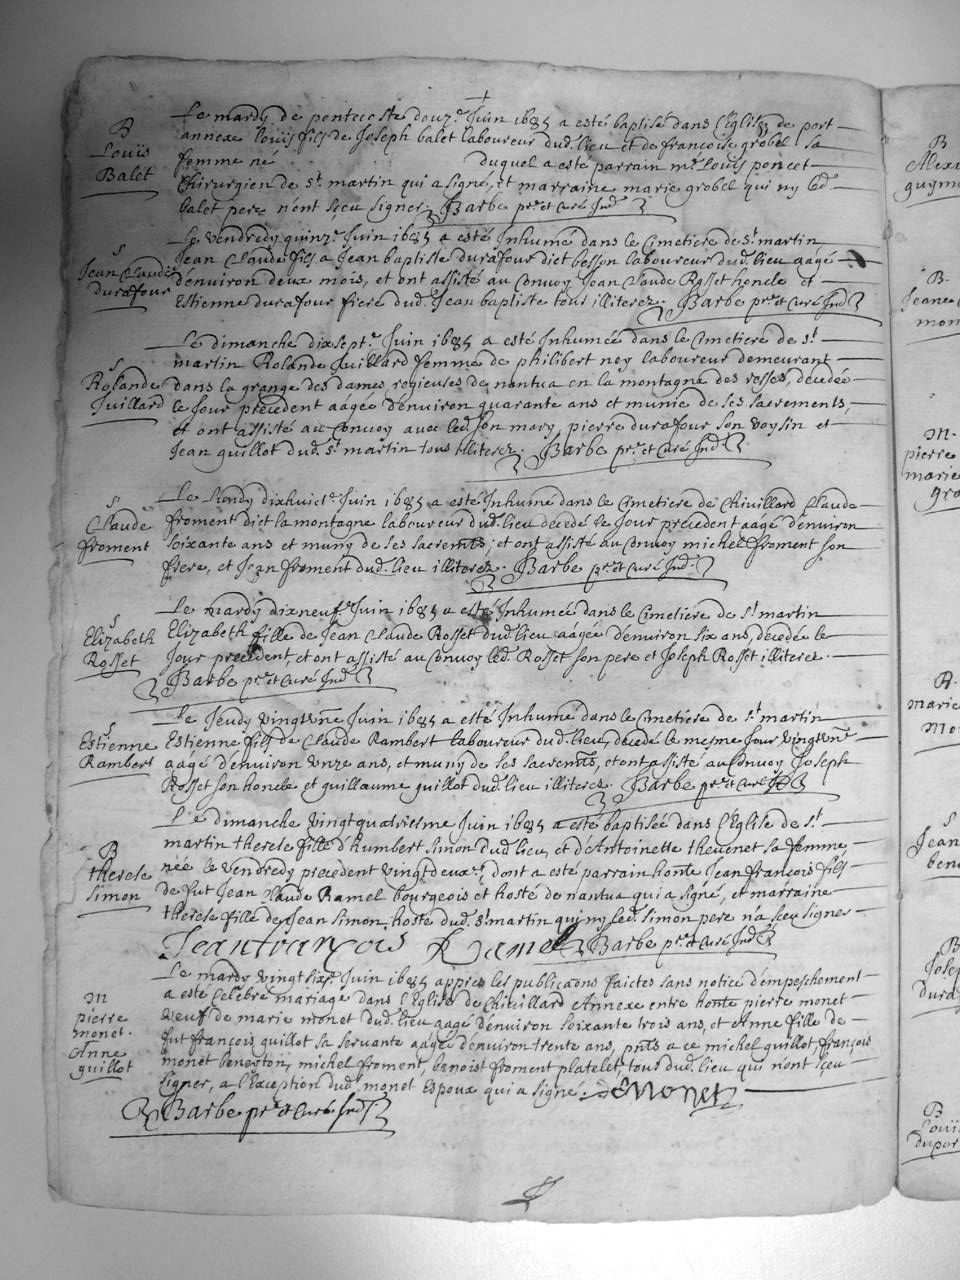 B
Louis
Balet
Le mardy de pentecoste douz.e Juin 1685 a esté baptisé dans l'Eglise de port
annexe Louis fils de Joseph balet laboureur dud. lieu et de françoise grobel sa
femme né duquel a esté parrain m.e Louis poncet
Chirurgien de S.t martin qui a signé, et marraine marie grobel qui ny led.
balet pere n'ont sçeu signer. Barbe p.re et Curé Ind
S
Jean Claude
durafour
Le vendredy quinz.e Juin 1685 a esté Inhumé dans le Cimetiere de S.t martin
Jean Claude fils a Jean baptiste durafour dict besson laboureur dud. lieu aagé
d'environ deux mois, et ont assisté au Convoy Jean Claude Rosset honcle et
Estienne durafour frere dud. Jean baptiste tous illiterez. Barbe p.re et Curé Ind
S
Rolande
Juillard
Le dimanche dixsept.e Juin 1685 a esté Inhumée dans le Cimetiere de S.t
martin Rolande Juillard femme de philibert ney laboureur demeurant
dans la grange des dames regieuses de nantua en la montagne des rosses, décédée
le Jour precedent aagée d'environ quarante ans et munie de ses sacrements,
et ont assisté au Convoy avec led. son mary, pierre durafour son voysin et
Jean guillot dud. S.t martin tous Illiterez. Barbe p.re et Curé Ind
S
Claude
froment
Le Lundy dixhuict.e Juin 1685 a esté Inhumé dans le Cimetiere de Chivillard Claude
froment dict la montagne laboureur dud. lieu decedé le Jour precedent aagé d'environ
soixante ans et muny de ses sacrem.ts, et ont assisté au Convoy michel froment son
frere, et Jean froment dud. lieu illiterez. Barbe p.re et Curé Ind
S
Elizabeth
Rosset
Le mardy dixneuf.e Juin 1685 a esté Inhumée dans le Cimetiere de S.t martin
Elizabeth fille de Jean Claude Rosset dud. lieu aagée d'environ six ans, decedée le
Jour precedent, et ont assisté au Convoy led. Rosset son pere et Joseph Rosset illiterez.
Barbe p.re et Curé Ind
S
Estienne
Rambert
Le Jeudy vingtune Juin 1685 a esté Inhumé dans le Cimetiere de S.t martin
Estienne fils de Claude Rambert laboureur dud. lieu, decedé le mesme Jour vingtune
aagé d'environ unze ans, et muny de ses sacrem.ts, et ont assisté au Convoy Joseph
Rosset son honcle et guillaume guillot dud. lieu illiterez. Barbe p.re et Curé Ind
B
therese
simon
Le dimanche vingtquatriesme Juin 1685 a esté baptisée dans l'Eglise de S.t
martin therese fille d'humbert simon dud. lieu, et d'Antoinette thevenet sa femme,
née le vendredy precedent vingtdeux.e, dont a esté parrain hon.te Jean françois fils
de fut Jean Claude Ramel bourgeois et hosté de nantua qui a signé, et marraine
therese fille de Jean simon hoste dud. S.t martin qui ny led. simon pere n'a sçeu signer
Jeanfrançois Ramel Barbe p.re et Curé Ind
M
pierre
monet.
Anne
guillot
Le mardy vingt six.e Juin 1685 apprès les publicaons faictes sans notice d'empeschement
a este Celebré mariage dans l'Eglise de Chivillard Annexe entre hon.te pierre monet
veuf de marie monet dud. lieu aagé d'environ soixante trois ans, et Anne fille de
fut françois guillot sa servante aagée d'environ trente ans, p.nts a ce michel guillot, françois
monet beneston, michel froment, benoist froment platelet, tous dud. lieu qui n'ont sçeu
signer, a l'Exception dud. monet Espoux qui a signé. Monet
Barbe p.re et Curé Ind
B
guym
B
Jeane
mon
M.
pierre
marie
gro
marie
Mo
S
Jean
ben
B
Josep
dura
B
Louis
dupor